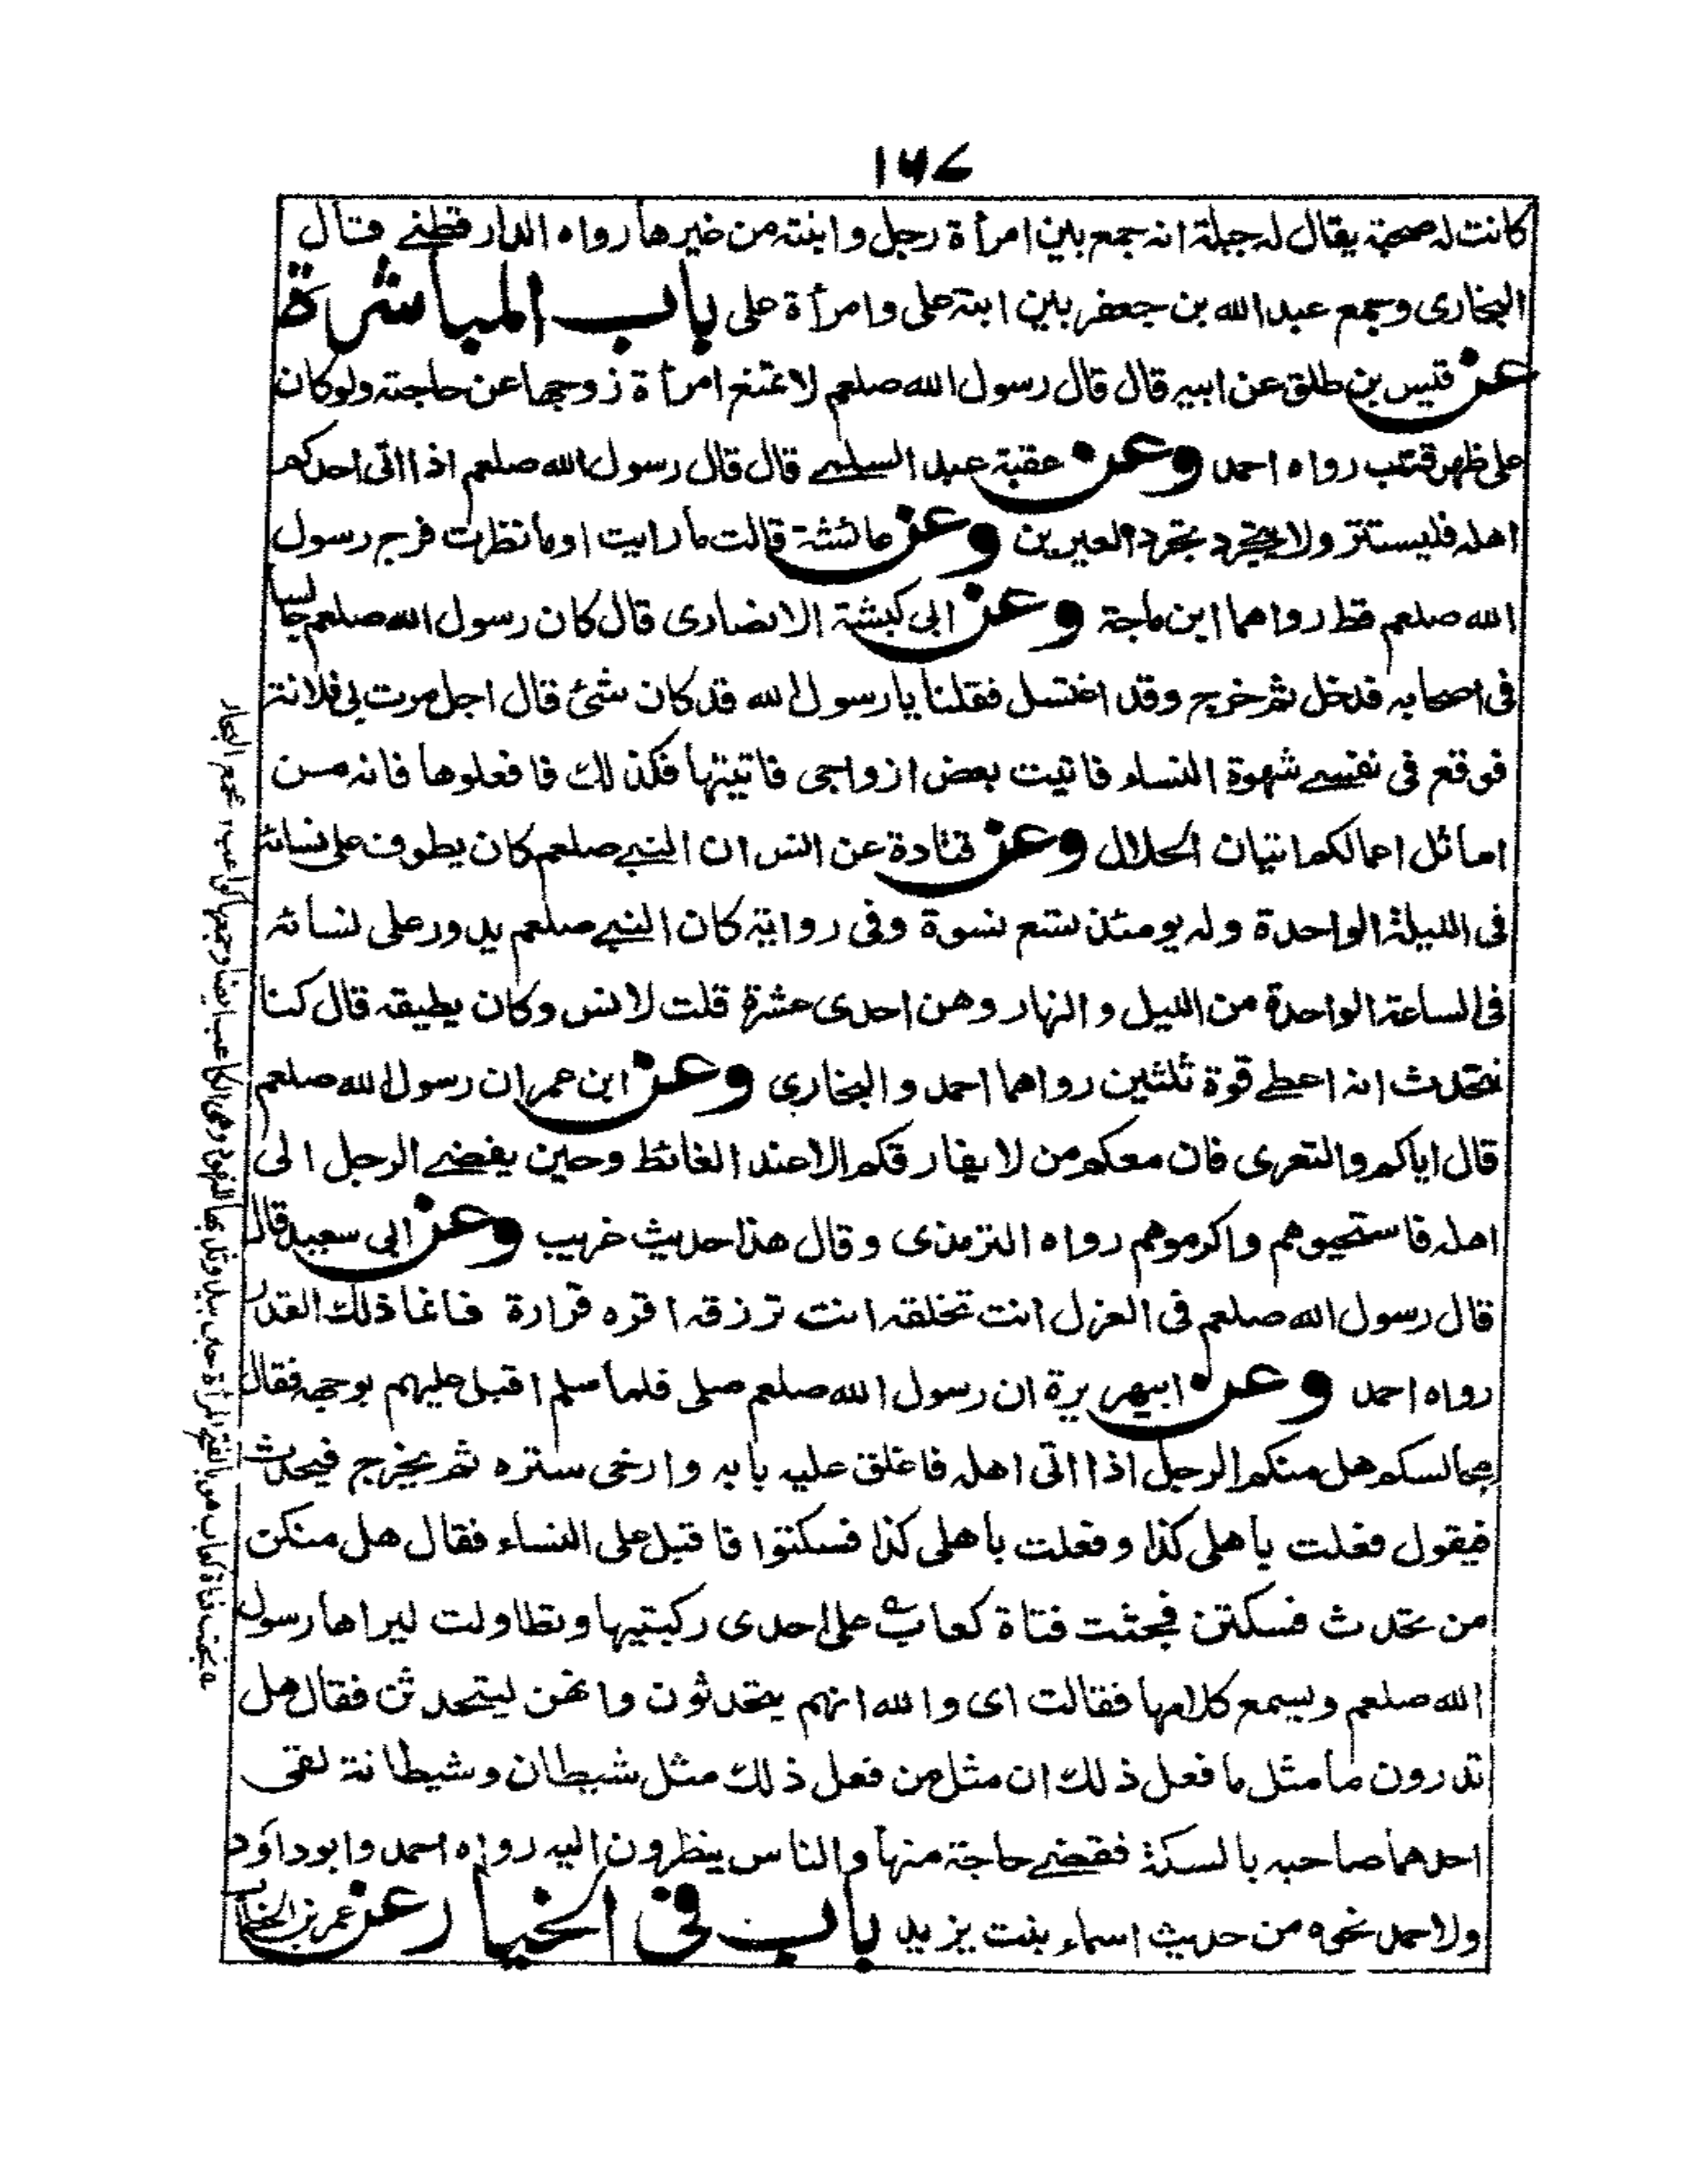 ١٦٧
كانت له صحبة يقال له جبلة انه جمع بين امرأة رجل وابنته من غيرها رواه الدارقطني قال
البخارى وجمع عبد الله بن جعفر بين ابنة على وامرأة على باب المباشرة
عن قيس بن طلق عن ابيه قال قال رسول الله صلعم لا تمنع امرأة زوجها عن حاجته ولوكان
على ظهر قتب رواه احمد وعن عقبة عبد السلمي قال قال رسول الله صلعم اذا اتى احدكم
اهله فليستتر ولا يتجرد تجرد العيرين وعن عائشة قالت ما رايت او ما نظرت فرج رسول
الله صلعم قط رواهما ابن ماجة وعن ابى كبشة الانمارى قال كان رسول الله صلعم جالسا
فى اصحابه فدخل ثم خرج وقد اغتسل فقلنا يا رسول الله قد كان شئ قال اجل مرت بى فلانة
فوقع فى نفسى شهوة النساء فاتيت بعض ازواجى فاتيتها فكذلك فافعلوها فانه من
اماثل اعمالكم اتيان الحلال وعن قتادة عن انس ان النبى صلعم كان يطوف على نسائه
فى الليلة الواحدة وله يومئذ تسع نسوة وفى رواية كان النبى صلعم يدور على نسائه
فى الساعة الواحدة من الليل والنهار وهن احدى عشرة قلت لانس وكان يطيقه قال كنا
نتحدث انه اعطى قوة ثلثين رواهما احمد والبخارى وعن ابن عمر ان رسول الله صلعم
قال اياكم والتعرى فان معكم من لا يفارقكم الا عند الغائط وحين يفضى الرجل الى
اهله فاستحيوهم واكرموهم رواه الترمذى وقال هذا حديث غريب وعن ابى سعيد قال
قال رسول الله صلعم فى العزل انت تخلقه انت ترزقه اقره قراره فانما ذلك القدر
رواه احمد وعن ابيهريرة ان رسول الله صلعم صلى فلما سلم اقبل عليهم بوجهه فقال
مجالسكم هل منكم الرجل اذا اتى اهله فاغلق عليه بابه وارخى ستره ثم يخرج فيحدث
فيقول فعلت باهلى كذا وفعلت باهلى كذا فسكتوا فاقبل على النساء فقال هل منكن
من تحدث فسكتن فجثت فتاة كعاب على احدى ركبتيها وتطاولت ليراها رسول
الله صلعم ويسمع كلامها فقالت اى والله انهم يتحدثون وانهن ليتحدثن فقال هل
تدرون ما مثل ما فعل ذلك ان مثل من فعل ذلك مثل شيطان وشيطانة لقى
احدهما صاحبه بالسكة فقضى حاجته منها والناس ينظرون اليه رواه احمد وابو داؤد
ولاحمد نحوه من حديث اسماء بنت يزيد باب فى الخيار عن عمر بن الخطاب